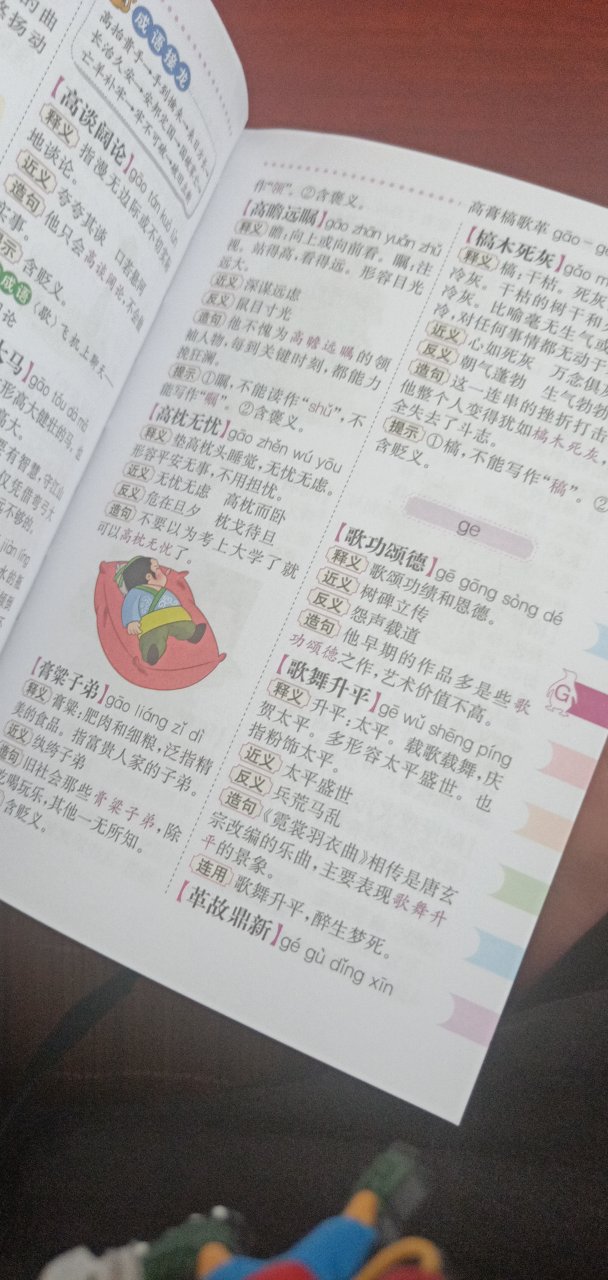 的曲
扬动
成语接龙
高抬贵手→手到擒来→来日方长→
长治久安→安邦定国→国
亡羊补牢→牢不可破→破
【高谈阔论】gāo tán kuò lùn
释义 指漫无边际或不切实际
地谈论。
近义 夸夸其谈 口若悬河
造句 他只会高谈阔论,不会做
实事。
提示 含贬义。
成语 (歇)飞机上聊天—
论
大马】gāo tóu dà mǎ
形高大健壮的马,也
高大。
要有智慧,守江山
仅凭借弯弓大
远不够的。
作“领”。②含褒义。
【高瞻远瞩】gāo zhān yuǎn zhǔ
释义 瞻:向上或向前看。瞩:注
视。站得高,看得远。形容目光
远大。
近义 深谋远虑
反义 鼠目寸光
造句 他不愧为高瞻远瞩的领
袖人物,每到关键时刻,都能力
挽狂澜。
提示 ①瞩,不能读作“shǔ”,不
能写作“嘱”。②含褒义。
【高枕无忧】gāo zhěn wú yōu
释义 垫高枕头睡觉,无忧无虑。
形容平安无事,不用担忧。
近义 无忧无虑 高枕而卧
反义 危在旦夕 枕戈待旦
造句 不要以为考上大学了就
可以高枕无忧了。
【膏粱子弟】gāo liáng zǐ dì
释义 膏粱:肥肉和细粮,泛指精
美的食品。指富贵人家的子弟。
近义 纨绔子弟
造句 旧社会那些膏粱子弟,除
吃喝玩乐,其他一无所知。
含贬义。
高膏槁歌革 gāo－gé
【槁木死灰】gǎo m
释义 槁:干枯。死灰
冷灰。干枯的树干和
冷灰。比喻毫无生气或
冷,对任何事情都无动于
近义 心如死灰 万念俱
反义 朝气蓬勃 生气勃勃
造句 这一连串的挫折打击
他整个人变得犹如槁木死灰,
全失去了斗志。
提示 ①槁,不能写作“稿”。②
含贬义。
ge
【歌功颂德】gē gōng sòng dé
释义 歌颂功绩和恩德。
近义 树碑立传
反义 怨声载道
造句 他早期的作品多是些歌
功颂德之作,艺术价值不高。
【歌舞升平】gē wǔ shēng píng
释义 升平:太平。载歌载舞,庆
贺太平。多形容太平盛世。也
指粉饰太平。
近义 太平盛世
反义 兵荒马乱
造句 《霓裳羽衣曲》相传是唐玄
宗改编的乐曲,主要表现歌舞升
平的景象。
连用 歌舞升平,醉生梦死。
【革故鼎新】gé gù dǐng xīn
G